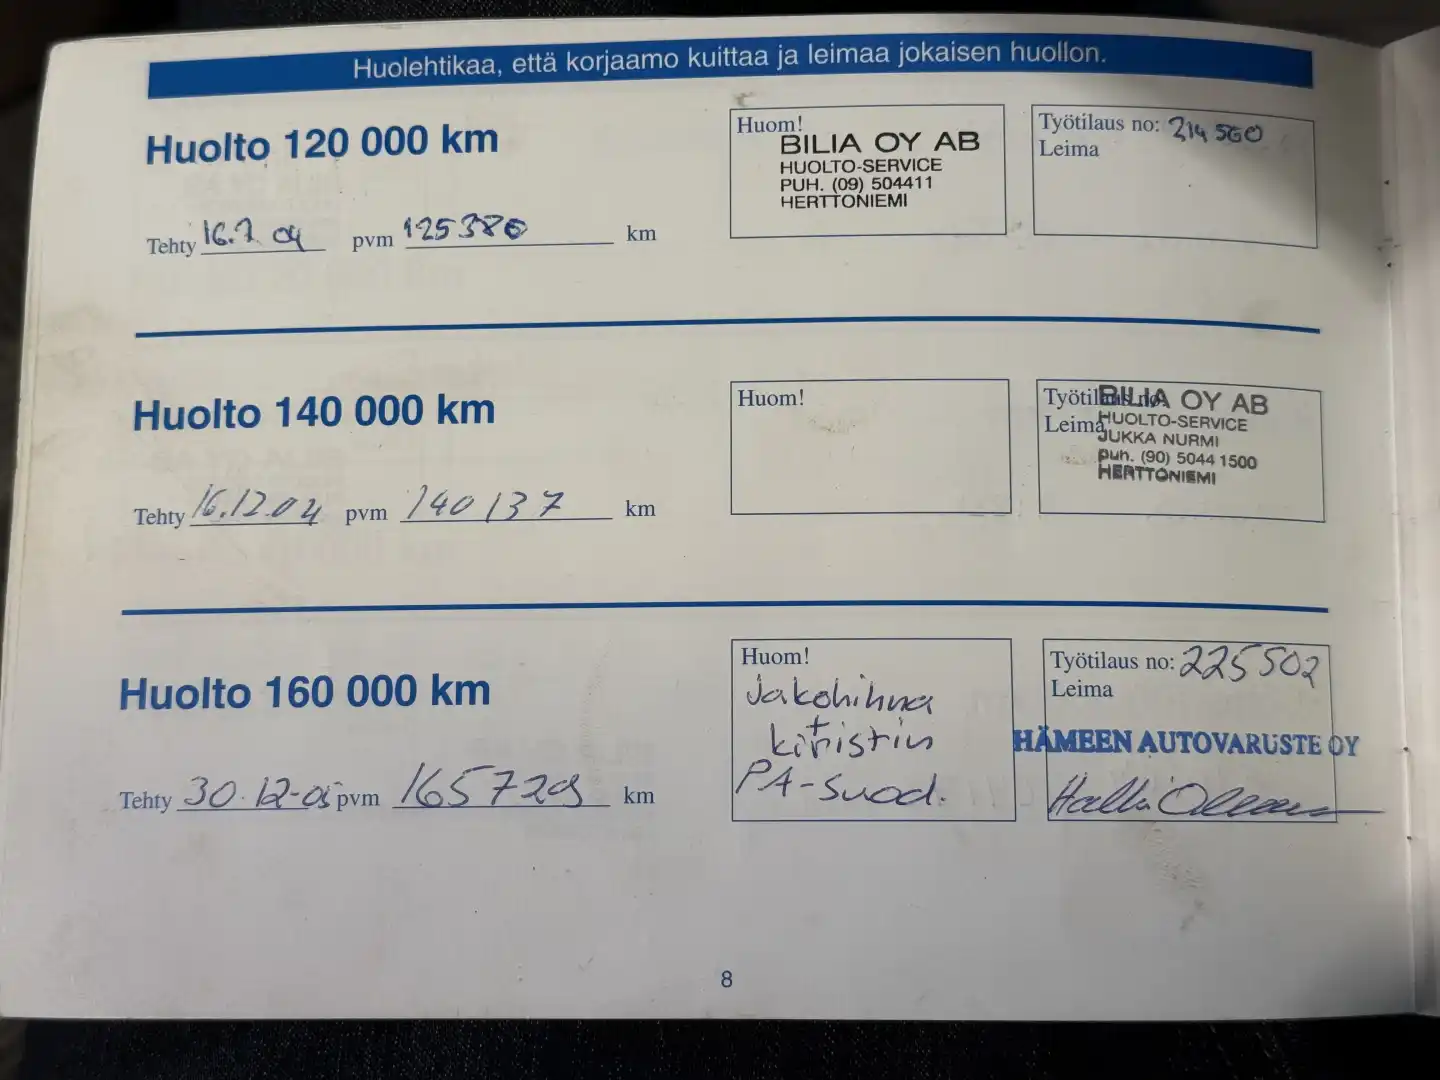 Huolehtikaa, että korjaamo kuittaa ja leimaa jokaisen huollon.
Huolto 120 000 km
Tehty 16.7.04 pvm 125380 km
Huom!
BILIA OY AB
HUOLTO-SERVICE
PUH. (09) 504411
HERTTONIEMI
Työtilaus no: 214560
Leima
Huolto 140 000 km
Tehty 16.12.04 pvm 140137 km
Huom!
Työtilaus no:
Leima
BILIA OY AB
HUOLTO-SERVICE
JUKKA NURMI
puh. (90) 5044 1500
HERTTONIEMI
Huolto 160 000 km
Tehty 30.12-05 pvm 165729 km
Huom!
Jakohihna
+
kiristin
PA-Suod.
Työtilaus no: 225502
Leima
HÄMEEN AUTOVARUSTE OY
8